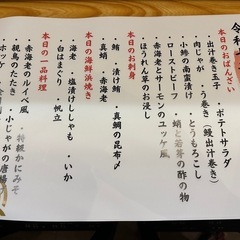 令和
本日のおばんざい
・出汁巻き玉子　・ポテトサラダ
・肉じゃが　・う巻き(鰻出汁巻き)
・小鯵の南蛮漬け　・とうもろこし
・ローストビーフ　・蛸と若芽の酢の物
・赤海老とサーモンのユッケ風
・ほうれん草のお浸し
本日のお刺身
・鮪　・漬け鮪　・真鯛の昆布〆
・真蛸　・赤海老　・帆立
本日の海鮮浜焼き
・海老　・塩漬けししゃも　・いか
・白はまぐり　・帆立
本日の一品料理
・赤海老のルイベ風　・特級かにみそ
・親鳥のたたき　・小じゃがの唐揚
・ホッケ